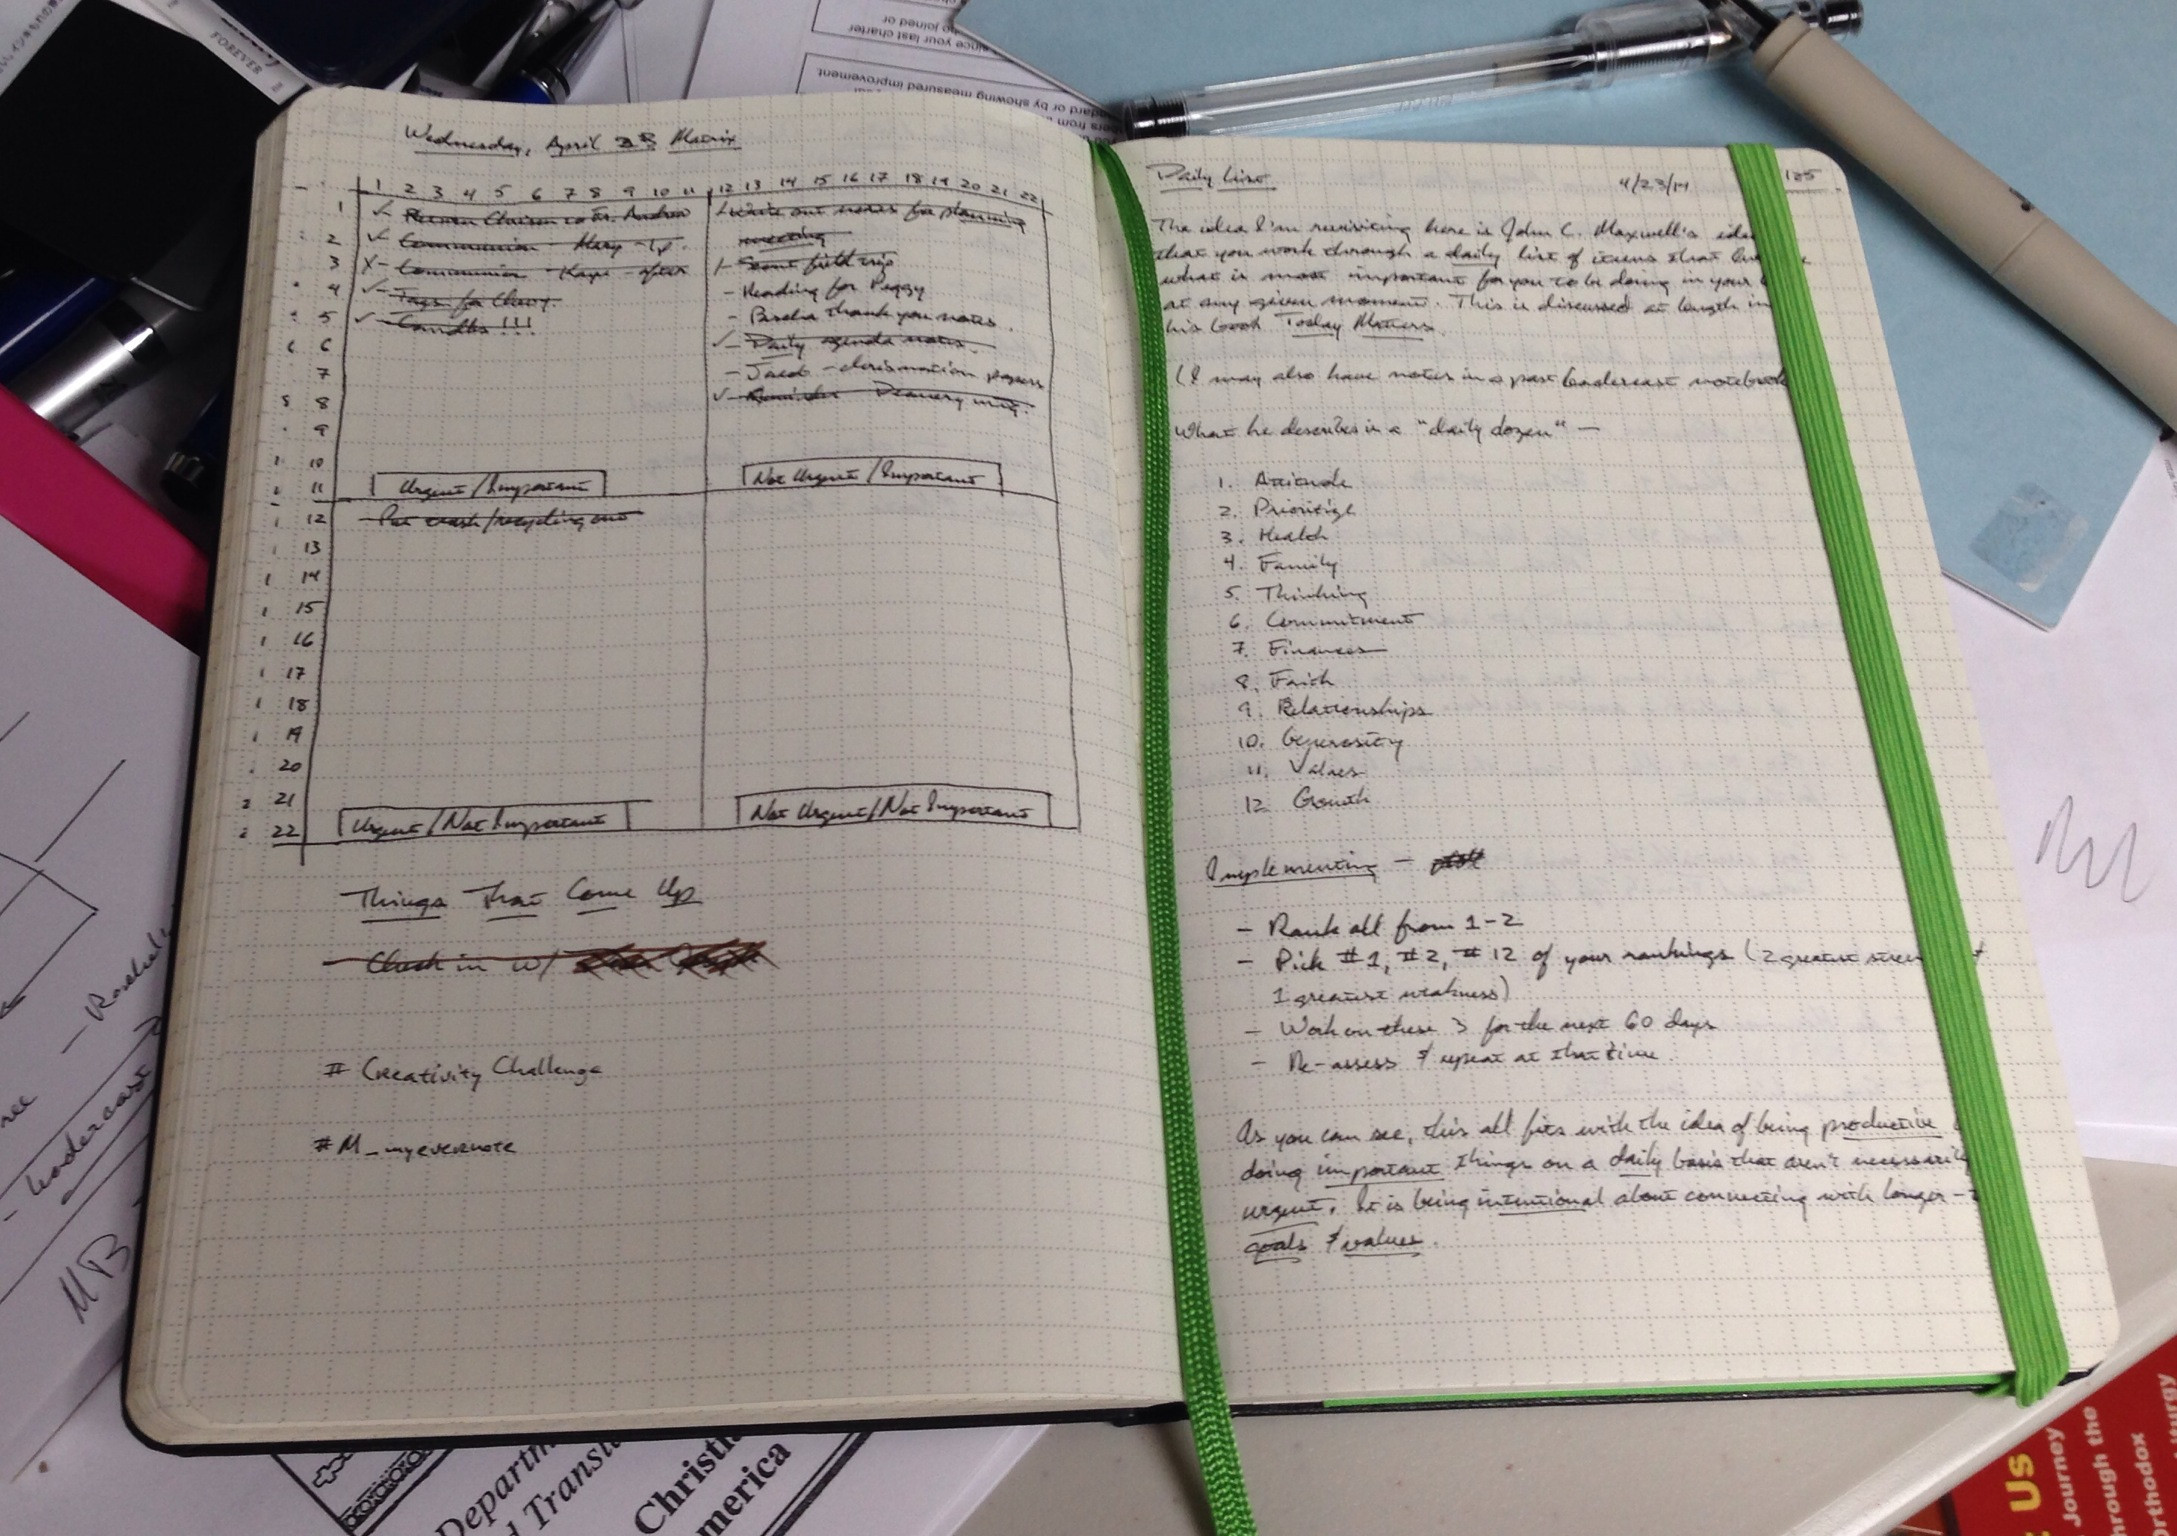 Wednesday, April 23 Matrix
1 2 3 4 5 6 7 8 9 10 11 12 13 14 15 16 17 18 19 20 21 22
1
2
3
4
5
6
7
8
9
10
11
12
13
14
15
16
17
18
19
20
21
22
✓ to Fr. Andrew
✓ - Communion - Mary - 1p.
X - Communion - Kaye - after
✓ - Tags for Chevy.
✓ - Candles !!!
Urgent/Important
Write out notes for planning
meeting
Scout field trip
- Reading for Peggy
- Pascha thank you notes.
✓ - Daily agenda notes.
- Jared - chrismation papers
✓ - Reminder Deanery mtg.
Not Urgent/Important
- Put trash/recycling out
Urgent/Not Important
Not Urgent/Not Important
Things That Come Up
- Check in w/
# Creativity Challenge
#M_myevernote
Daily List 4/23/14 125
The idea I'm revisiting here is John C. Maxwell's idea
that you work through a daily list of items that
what is most important for you to be doing in your
at any given moment. This is discussed at length in
his book Today Matters.
(I may also have notes in a past Leadercast notebook
What he describes is a "daily dozen" —
1. Attitude
2. Prioritize
3. Health
4. Family
5. Thinking
6. Commitment
7. Finances
8. Faith
9. Relationships
10. Generosity
11. Values
12. Growth
Implementing -
- Rank all from 1-2
- Pick #1, #2, #12 of your rankings (2 greatest
1 greatest weakness)
- Work on these 3 for the next 60 days
- Re-assess & repeat at that time.
As you can see, this all fits with the idea of being productive
doing important things on a daily basis that aren't necessarily
urgent. It is being intentional about connecting with longer-
goals & values.
FOREVER
since your last charter
no joined or
ndard or by showing measured improvement
Leadercast
MB
Departm
d Transl
Christi
merica
Us
Journey
hrough the
rthodox
iturgy